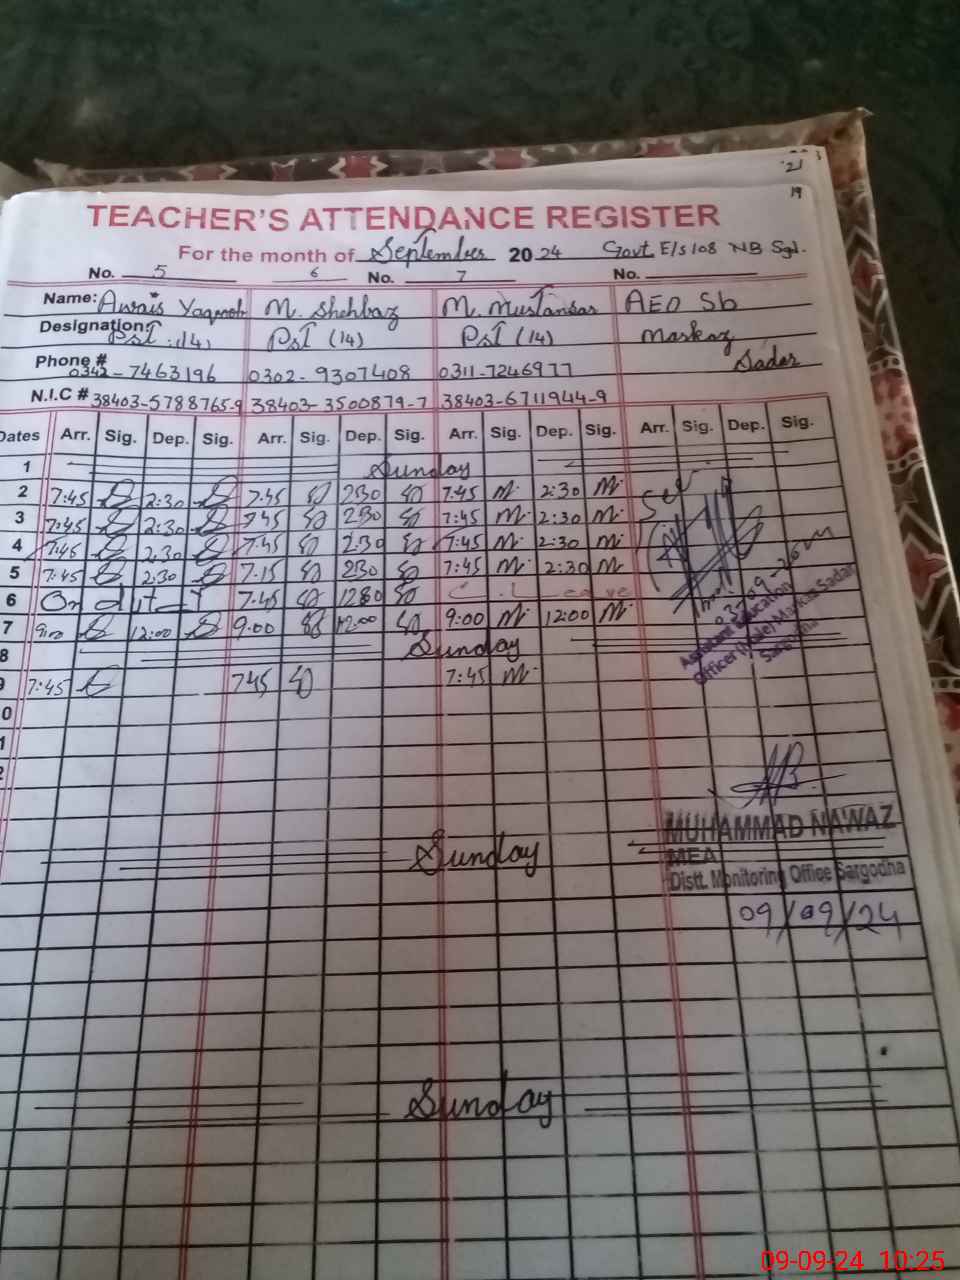 '21
19
TEACHER'S ATTENDANCE REGISTER
For the month of September 2024 Govt. E/S 108 NB Sgd.
No. 5 6 No. 7 No.
Name: Awais Yaqoob M. Shehbaz M. Mustansar AEO Sb
Designation: PST (14) PST (14) PST (14) Markaz
Sadar
Phone # 0342-7463196 0302-9307408 0311-7246977
N.I.C # 38403-5788765-9 38403-3500879-7 38403-6711944-9
Dates Arr. Sig. Dep. Sig. Arr. Sig. Dep. Sig. Arr. Sig. Dep. Sig. Arr. Sig. Dep. Sig.
1 Sunday
2 7:45 2:30 7:45 2:30 7:45 M. 2:30 M.
3 7:45 2:30 7:45 2:30 7:45 M. 2:30 M.
4 7:45 2:30 7:45 2:30 7:45 M. 2:30 M.
5 7:45 2:30 7:15 2:30 7:45 M. 2:30 M.
6 On duty 7:45 12:30 C. Leave
7 9:00 12:00 9:00 12:00 9:00 M. 12:00 M.
8 Sunday
9 7:45 745 7:45 M.
0
1
2
Assistant Education
Officer (Male) Markaz Sadar
Sargodha
Sunday
MUHAMMAD NAWAZ
MEA
Distt. Monitoring Office Sargodha
09/09/24
Sunday
09-09-24 10:25